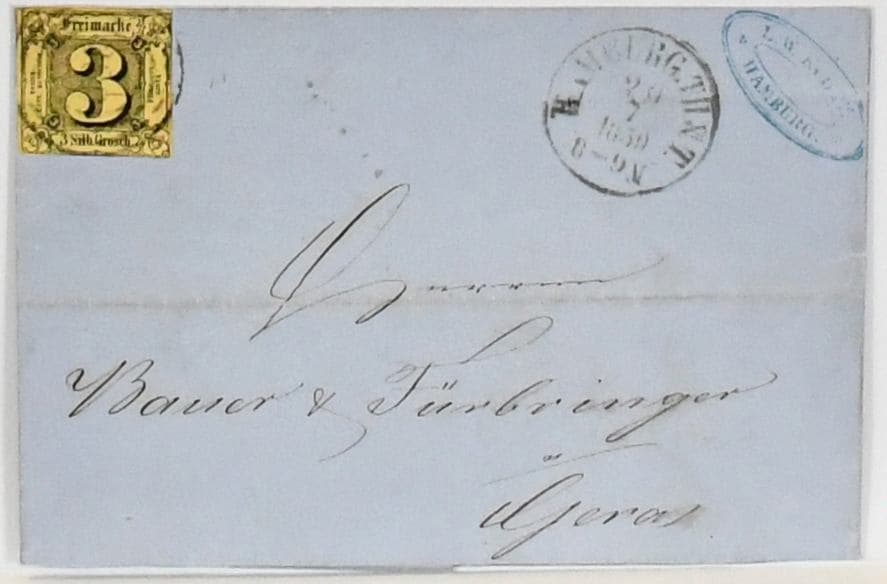 Freimarke
3
3 Silb. Grosch.
HAMBURG. TH. & T.
7
1859
8–9 N
HAMBURG.
Herren
Bauer & Fürbringer
in Gera